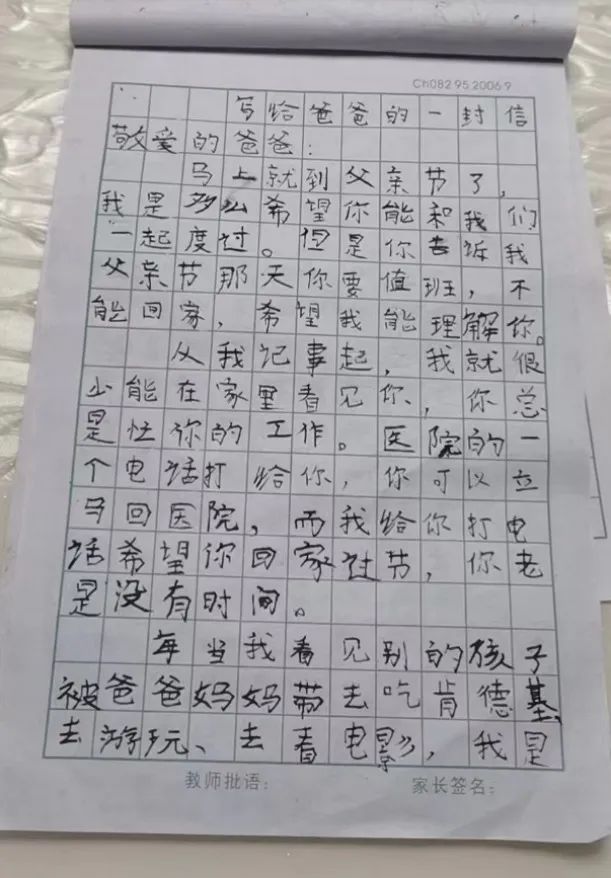 Ch082 95 2006 9
写给爸爸的一封信
敬爱的爸爸：
马上就到父亲节了，
我是多么希望你能和我们
一起度过。但是你告诉我
父亲节那天你要值班，不
能回家，希望我能理解你。
从我记事起，我就很
少能在家里看见你，你总
是忙你的工作。医院的一
个电话打给你，你可以立
马回医院，而我给你打电
话希望你回家过节，你老
是没有时间。
每当我看见别的孩子
被爸爸妈妈带去吃肯德基、
去游玩、去看电影，我是
教师批语：
家长签名：